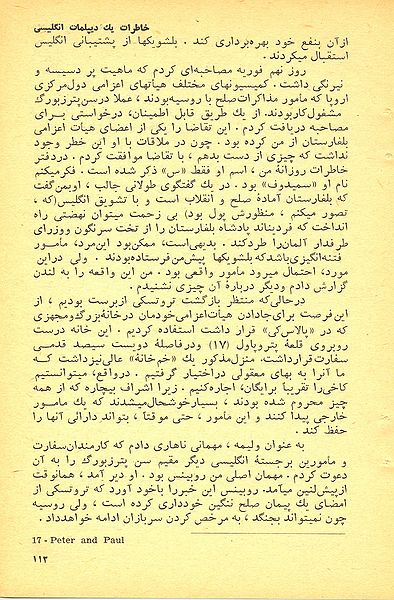 خاطرات یك دیپلمات انگلیسی
ازآن بنفع خود بهره‌برداری کند . بلشویکها از پشتیبانی انگلیس
استقبال میکردند.
روز نهم فوریه مصاحبه‌ای کردم که ماهیت پر دسیسه و
نیرنگی داشت. کمیسیونهای مختلف هیأتهای اعزامی دول‌مرکزی
اروپا که مامور مذاکرات‌صلح با روسیه‌بودند ، عملا درسن‌پترزبورگ
مشغول‌کاربودند. از یك طریق قابل اطمینان، درخواستی برای
مصاحبه دریافت کردم . این تقاضا را یکی از اعضای هیأت اعزامی
بلغارستان از من کرده بود. چون در ملاقات با او این خطر وجود
نداشت که چیزی از دست بدهم ، با تقاضا موافقت کردم . دردفتر
خاطرات روزانهٔ من ، اسم او فقط «س» ذکر شده است . فکرمیکنم
نام او «سمیدوف» بود . در یك گفتگوی طولانی جالب ، اوبمن‌گفت
که بلغارستان آمادهٔ صلح و انقلاب است و با تشویق انگلیس(که ،
تصور میکنم ، منظورش پول بود) بی زحمت میتوان نهضتی راه
انداخت که فردیناند پادشاه بلغارستان را از تخت سرنگون ووزرای
طرفدار آلمان‌را طردکند . بدیهی‌است، ممکن‌بود این‌مرد، مامور
فتنه‌انگیزی‌باشدکه بلشویکها پیش‌من‌فرستاده‌بودند . ولی دراین
مورد، احتمال میرود مامور واقعی بود . من این واقعه را به لندن
گزارش دادم ودیگر دربارهٔ آن چیزی نشنیدم .
درحالی‌که منتظر بازگشت تروتسکی ازبرست بودیم ، از
این‌فرصت برای‌جادادن هیأت‌اعزامی‌خودمان درخانهٔ‌بزرگ‌ومجهزی
که در «پالاس‌کی» قرار داشت استفاده کردیم . این خانه درست
روبروی قلعهٔ پتروپاول (۱۷) ودرفاصلهٔ دویست سیصد قدمی
سفارت‌قرارداشت. منزل‌مذکور یك «خم‌خانهٔ» عالی‌نیزداشت که
ما آنرا به بهای معقولی دراختیار گرفتیم . درواقع، میتوانستیم
کاخی‌را تقریباً برایگان، اجاره‌کنیم . زیرا اشراف بیچاره که از همه
چیز محروم شده بودند ، بسیارخوشحال‌میشدند که یك مامور
خارجی پیدا کنند و این مامور ، حتی موقتاً ، بتواند دارائی آنها را
حفظ کند .
به عنوان ولیمه ، مهمانی ناهاری دادم که کارمندان‌سفارت
و مامورین برجستهٔ انگلیسی دیگر مقیم سن پترزبورگ را به آن
دعوت کردم . مهمان اصلی من روبینس بود . او دیر آمد ، همانوقت
ازپیش‌لنین میآمد. روبینس این خبررا باخود آورد که تروتسکی از
امضای یك پیمان صلح ننگین خودداری کرده است ، ولی روسیه
چون نمیتواند بجنگد ، به مرخص کردن سربازان ادامه خواهدداد .
17 - Peter and Paul
۱۱۳